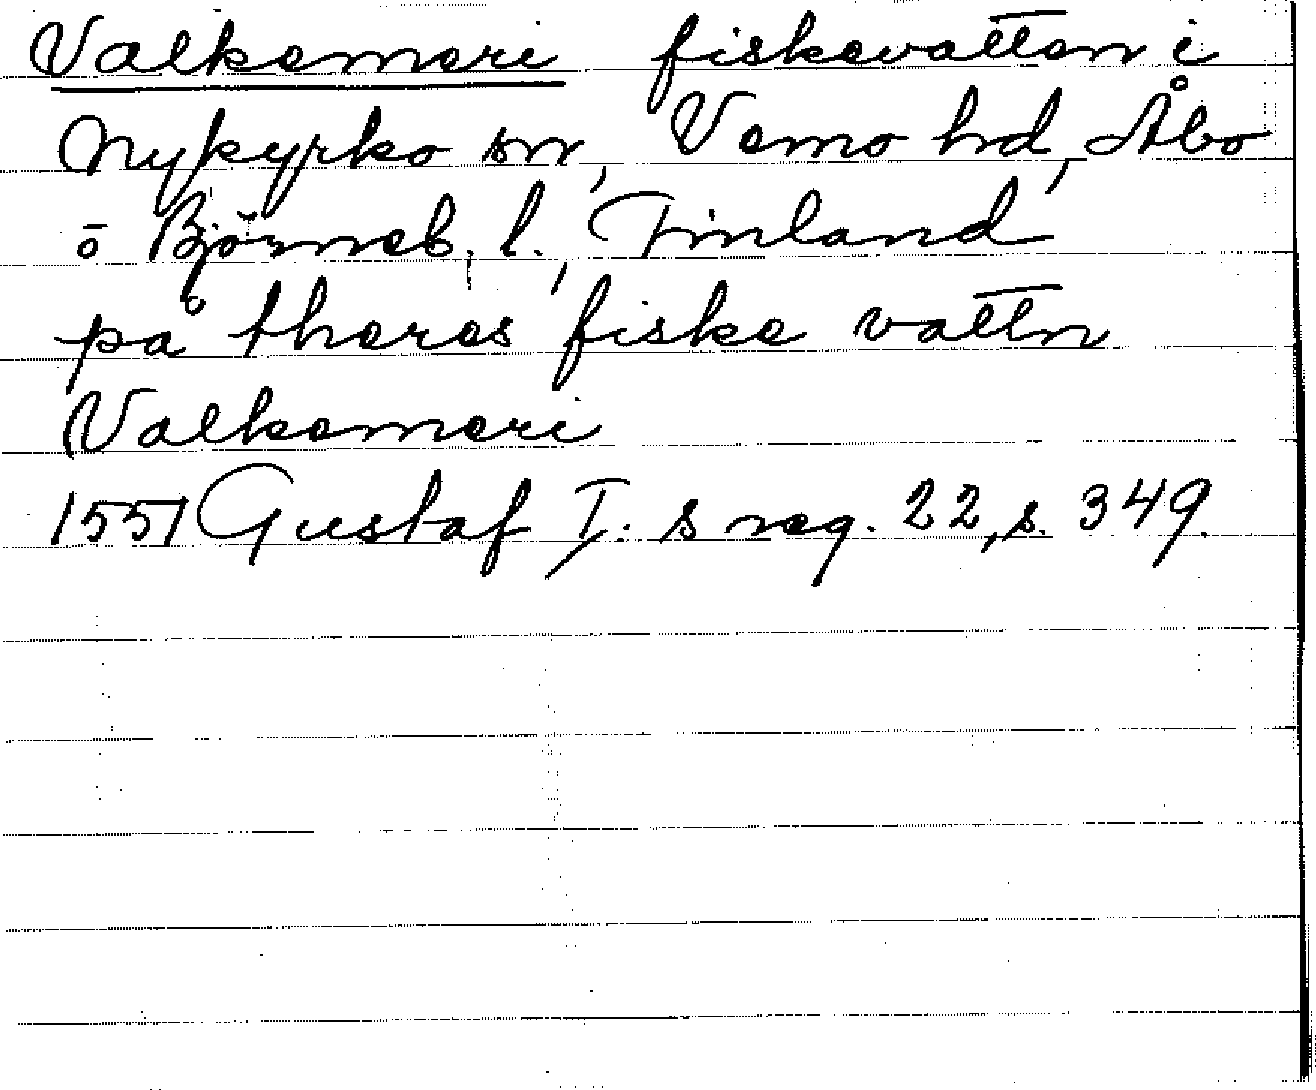 Valkemeri fiskevatten i
Nykyrko sn, Vemo hd, Åbo
o Björneb. l., Finland
på theres fiske vattn
Valkemeri
1551 Gustaf I: s reg. 22, s. 349.